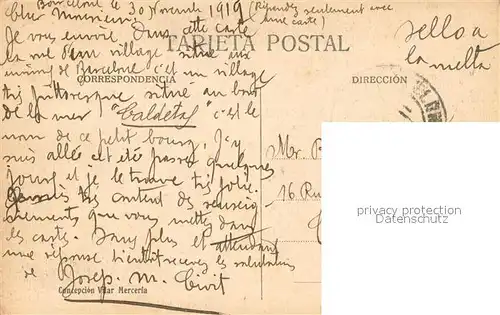 Barcelone le 30 Novembre 1919 (Répondez seulement avec
une carte)
Cher Monsieur
Je vous envoie dans cette carte
la vue d'un village situé aux
environs de Barcelone c'est un village
très pittoresque situé au bord
de la mer "Caldetas" c'est le
nom de ce petit bourg. J'y
suis allée et été passer quelques
jours et je le trouve très jolie.
très content des renseig
nements que vous mettez dans
les cartes. Sans plus et attendant
une réponse bientôt recevez les salutations
de Josep. M. Civit
TARJETA POSTAL
CORRESPONDENCIA
DIRECCIÓN
sello a
la vuelta
Mr.
16 Ru
Concepción Vilar Mercería
privacy protection
Datenschutz